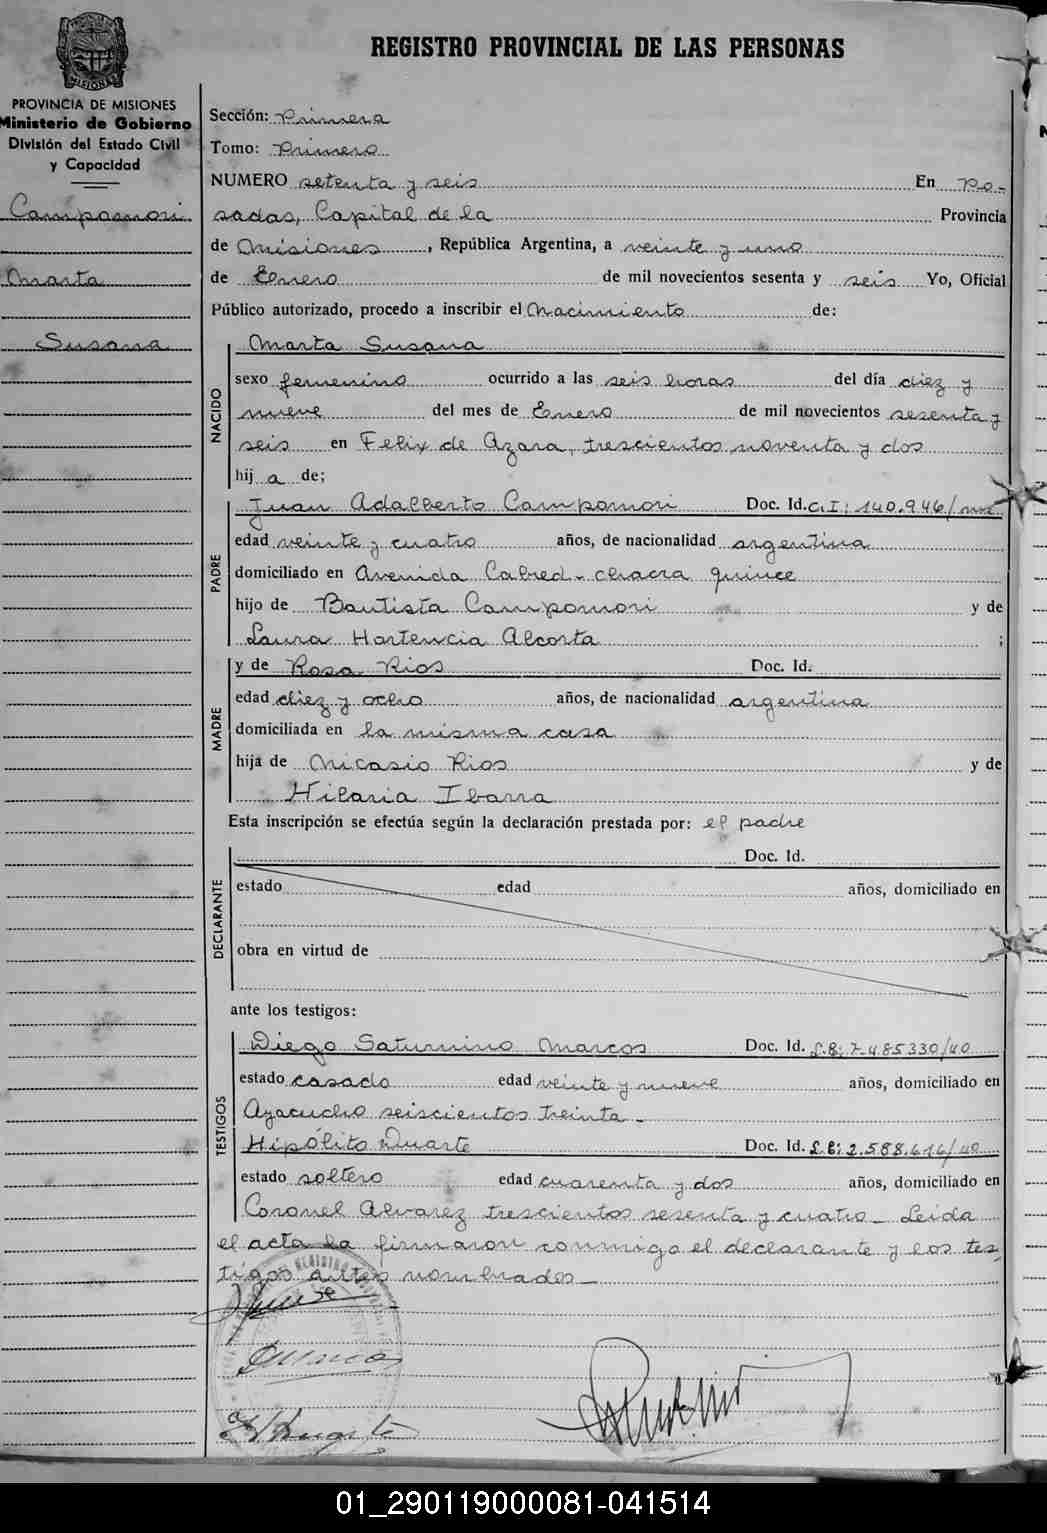 REGISTRO PROVINCIAL DE LAS PERSONAS
MISIONES
PROVINCIA DE MISIONES
Ministerio de Gobierno
División del Estado Civil
y Capacidad
Campomori
Marta
Susana
Sección: Primera
Tomo: Primero
NUMERO setenta y seis En Po-
sadas, Capital de la Provincia
de Misiones, República Argentina, a veinte y uno
de Enero de mil novecientos sesenta y seis Yo, Oficial
Público autorizado, procedo a inscribir el Nacimiento de:
NACIDO
Marta Susana
sexo femenino ocurrido a las seis horas del día diez y
nueve del mes de Enero de mil novecientos sesenta y
seis en Felix de Azara, trescientos noventa y dos
hij a de;
PADRE
Juan Adalberto Campomori Doc. Id. C.I: 140.946/
edad veinte y cuatro años, de nacionalidad argentina
domiciliado en Avenida Cabred - chacra quince
hijo de Bautista Campomori y de
Laura Hortencia Alcorta ;
MADRE
y de Rosa Rios Doc. Id.
edad diez y ocho años, de nacionalidad argentina
domiciliada en la misma casa
hija de Nicasio Rios y de
Hilaria Ibarra
Esta inscripción se efectúa según la declaración prestada por: el padre
DECLARANTE
Doc. Id.
estado edad años, domiciliado en
obra en virtud de
ante los testigos:
TESTIGOS
Diego Saturnino Marcos Doc. Id. L.E: 7.485330/40
estado casado edad veinte y nueve años, domiciliado en
Ayacucho seiscientos treinta -
Hipólito Duarte Doc. Id. L.E: 2.588.616/40
estado soltero edad cuarenta y dos años, domiciliado en
Coronel Alvarez trescientos sesenta y cuatro - Leida
el acta la firmaron conmigo el declarante y los tes-
tigos antes nombrados -
DMarcos
H Duarte
01_290119000081-041514